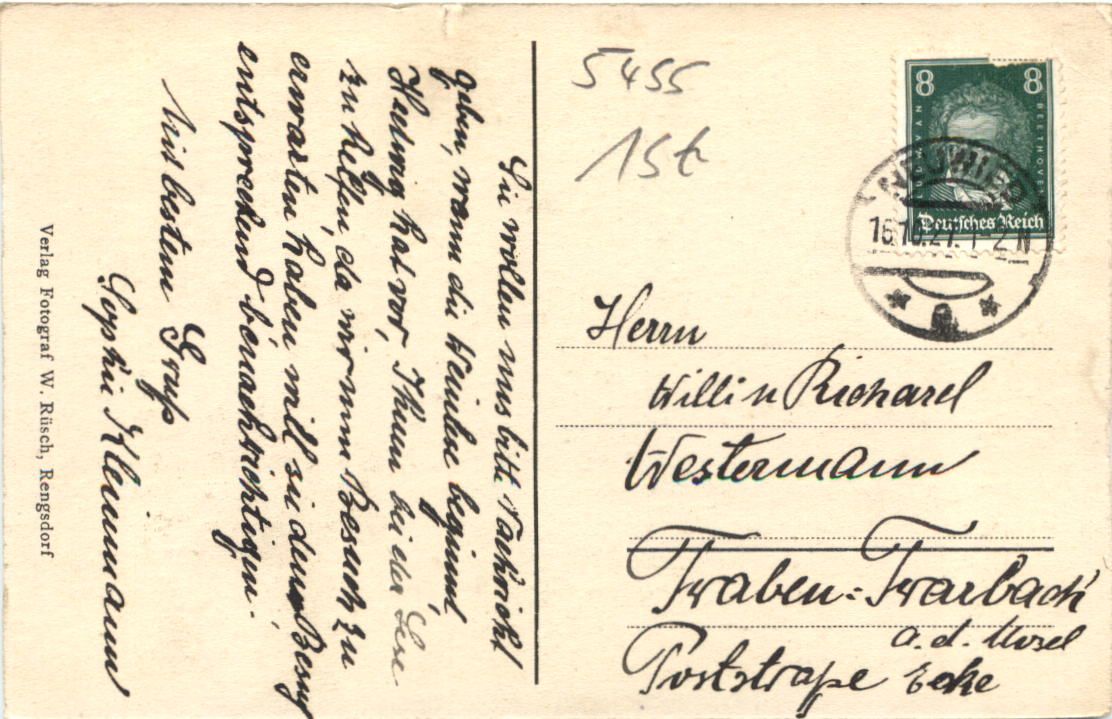 Sie wollen uns bitte Nachricht
geben, wann die Weinlese beginnt,
Hedwig hat vor, Ihnen bei der Lese
zu helfen, da wir nun Besuch zu
erwarten haben will sie den Besuch
entsprechend benachrichtigen.
Mit bestem Gruß
Sophie Kleinmann
Verlag Fotograf W. Rüsch, Rengsdorf
5455
15t
8 8
LUDW. VAN BEETHOVEN
Deutsches Reich
NEUWIED
16.10.27. 1-2 N
Herrn
Willi u Richard
Westermann
Traben-Trarbach
a. d. Mosel
Poststraße Ecke